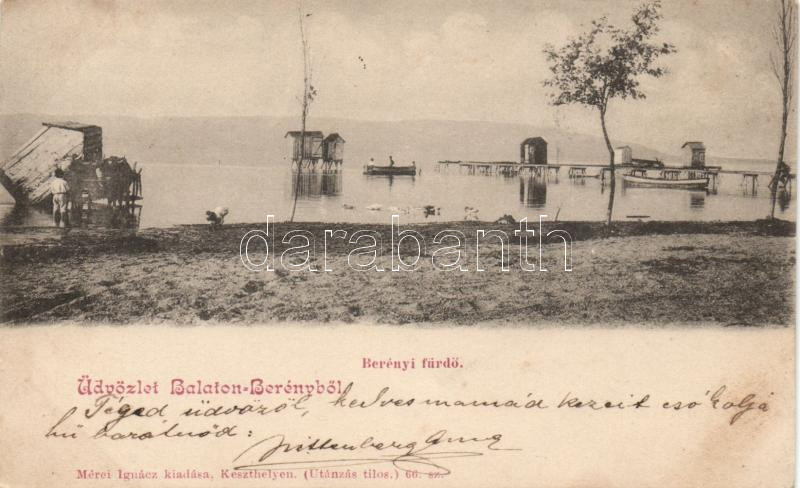 darabanth
Berényi fürdő.
Üdvözlet Balaton-Berényből
Téged üdvözöl, kedves mamád kezeit csókolja
hű barátnőd:
Wittenberg Anna
Mérei Ignácz kiadása, Keszthelyen. (Utánzás tilos.) 66. sz.